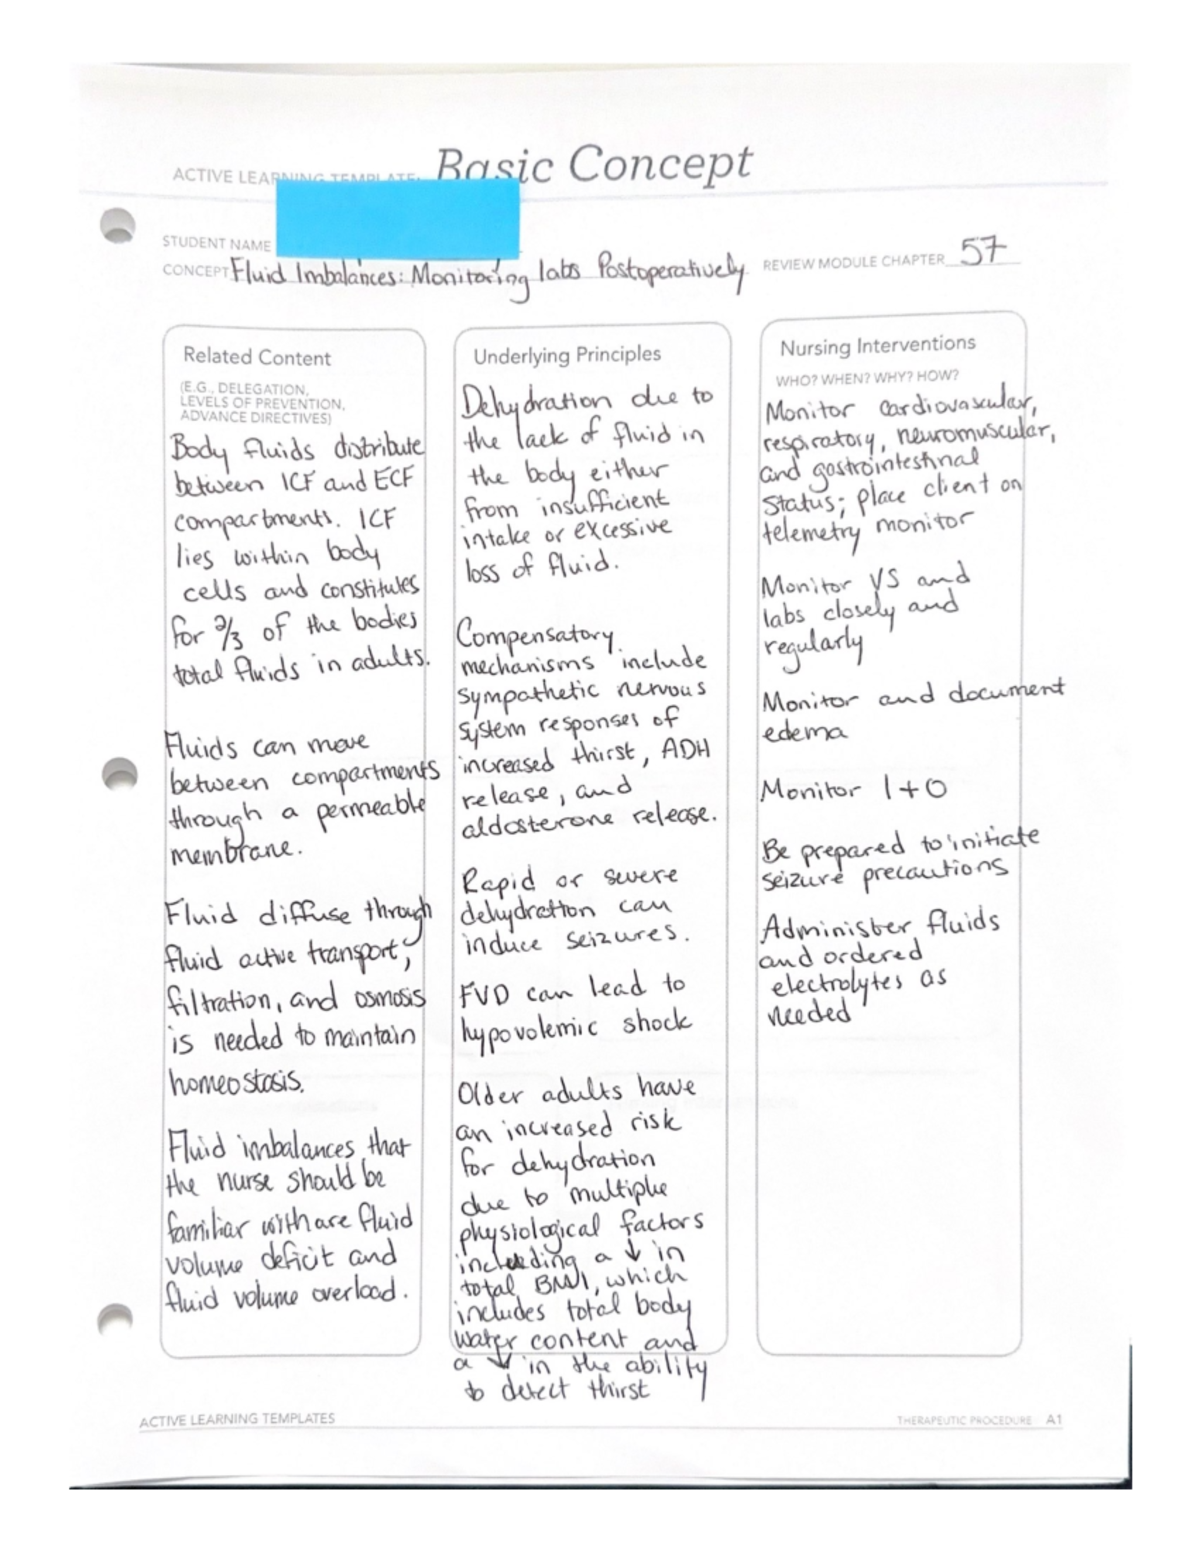 ACTIVE LEARNING TEMPLATE: Basic Concept
STUDENT NAME
CONCEPT Fluid Imbalances: Monitoring labs Postoperatively REVIEW MODULE CHAPTER 57
Related Content
(E.G., DELEGATION,
LEVELS OF PREVENTION,
ADVANCE DIRECTIVES)
Body fluids distribute
between ICF and ECF
compartments. ICF
lies within body
cells and constitutes
for 2/3 of the bodies
total fluids in adults.
Fluids can move
between compartments
through a permeable
membrane.
Fluid diffuse through
fluid active transport,
filtration, and osmosis
is needed to maintain
homeostasis.
Fluid imbalances that
the nurse should be
familiar with are fluid
volume deficit and
fluid volume overload.
Underlying Principles
Dehydration due to
the lack of fluid in
the body either
from insufficient
intake or excessive
loss of fluid.
Compensatory
mechanisms include
sympathetic nervous
system responses of
increased thirst, ADH
release, and
aldosterone release.
Rapid or severe
dehydration can
induce seizures.
FVD can lead to
hypovolemic shock
Older adults have
an increased risk
for dehydration
due to multiple
physiological factors
including a ↓ in
total BMI, which
includes total body
water content and
a ↓ in the ability
to detect thirst
Nursing Interventions
WHO? WHEN? WHY? HOW?
Monitor cardiovascular,
respiratory, neuromuscular,
and gastrointestinal
status; place client on
telemetry monitor
Monitor VS and
labs closely and
regularly
Monitor and document
edema
Monitor I+O
Be prepared to initiate
seizure precautions
Administer fluids
and ordered
electrolytes as
needed
ACTIVE LEARNING TEMPLATES THERAPEUTIC PROCEDURE A1